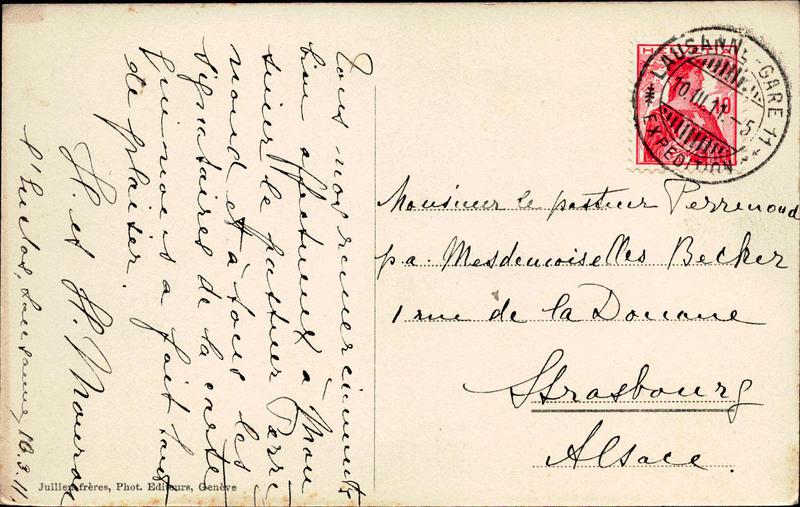 Tous nos remerciements
bien affectueux à Mon
sieur le pasteur Perre
noud et à tous les
signataires de la carte
qui nous a fait tant
de plaisir.
H. et H.
l'Enclos, Lausanne, 10.3.11.
Jullien frères, Phot. Editeurs, Genève
HELVETIA
LAUSANNE-GARE 11
10.III.11.-5
EXPEDITION
10
Monsieur le pasteur Perrenoud
p.a. Mesdemoiselles Becker
1 rue de la Douane
Strasbourg
Alsace.